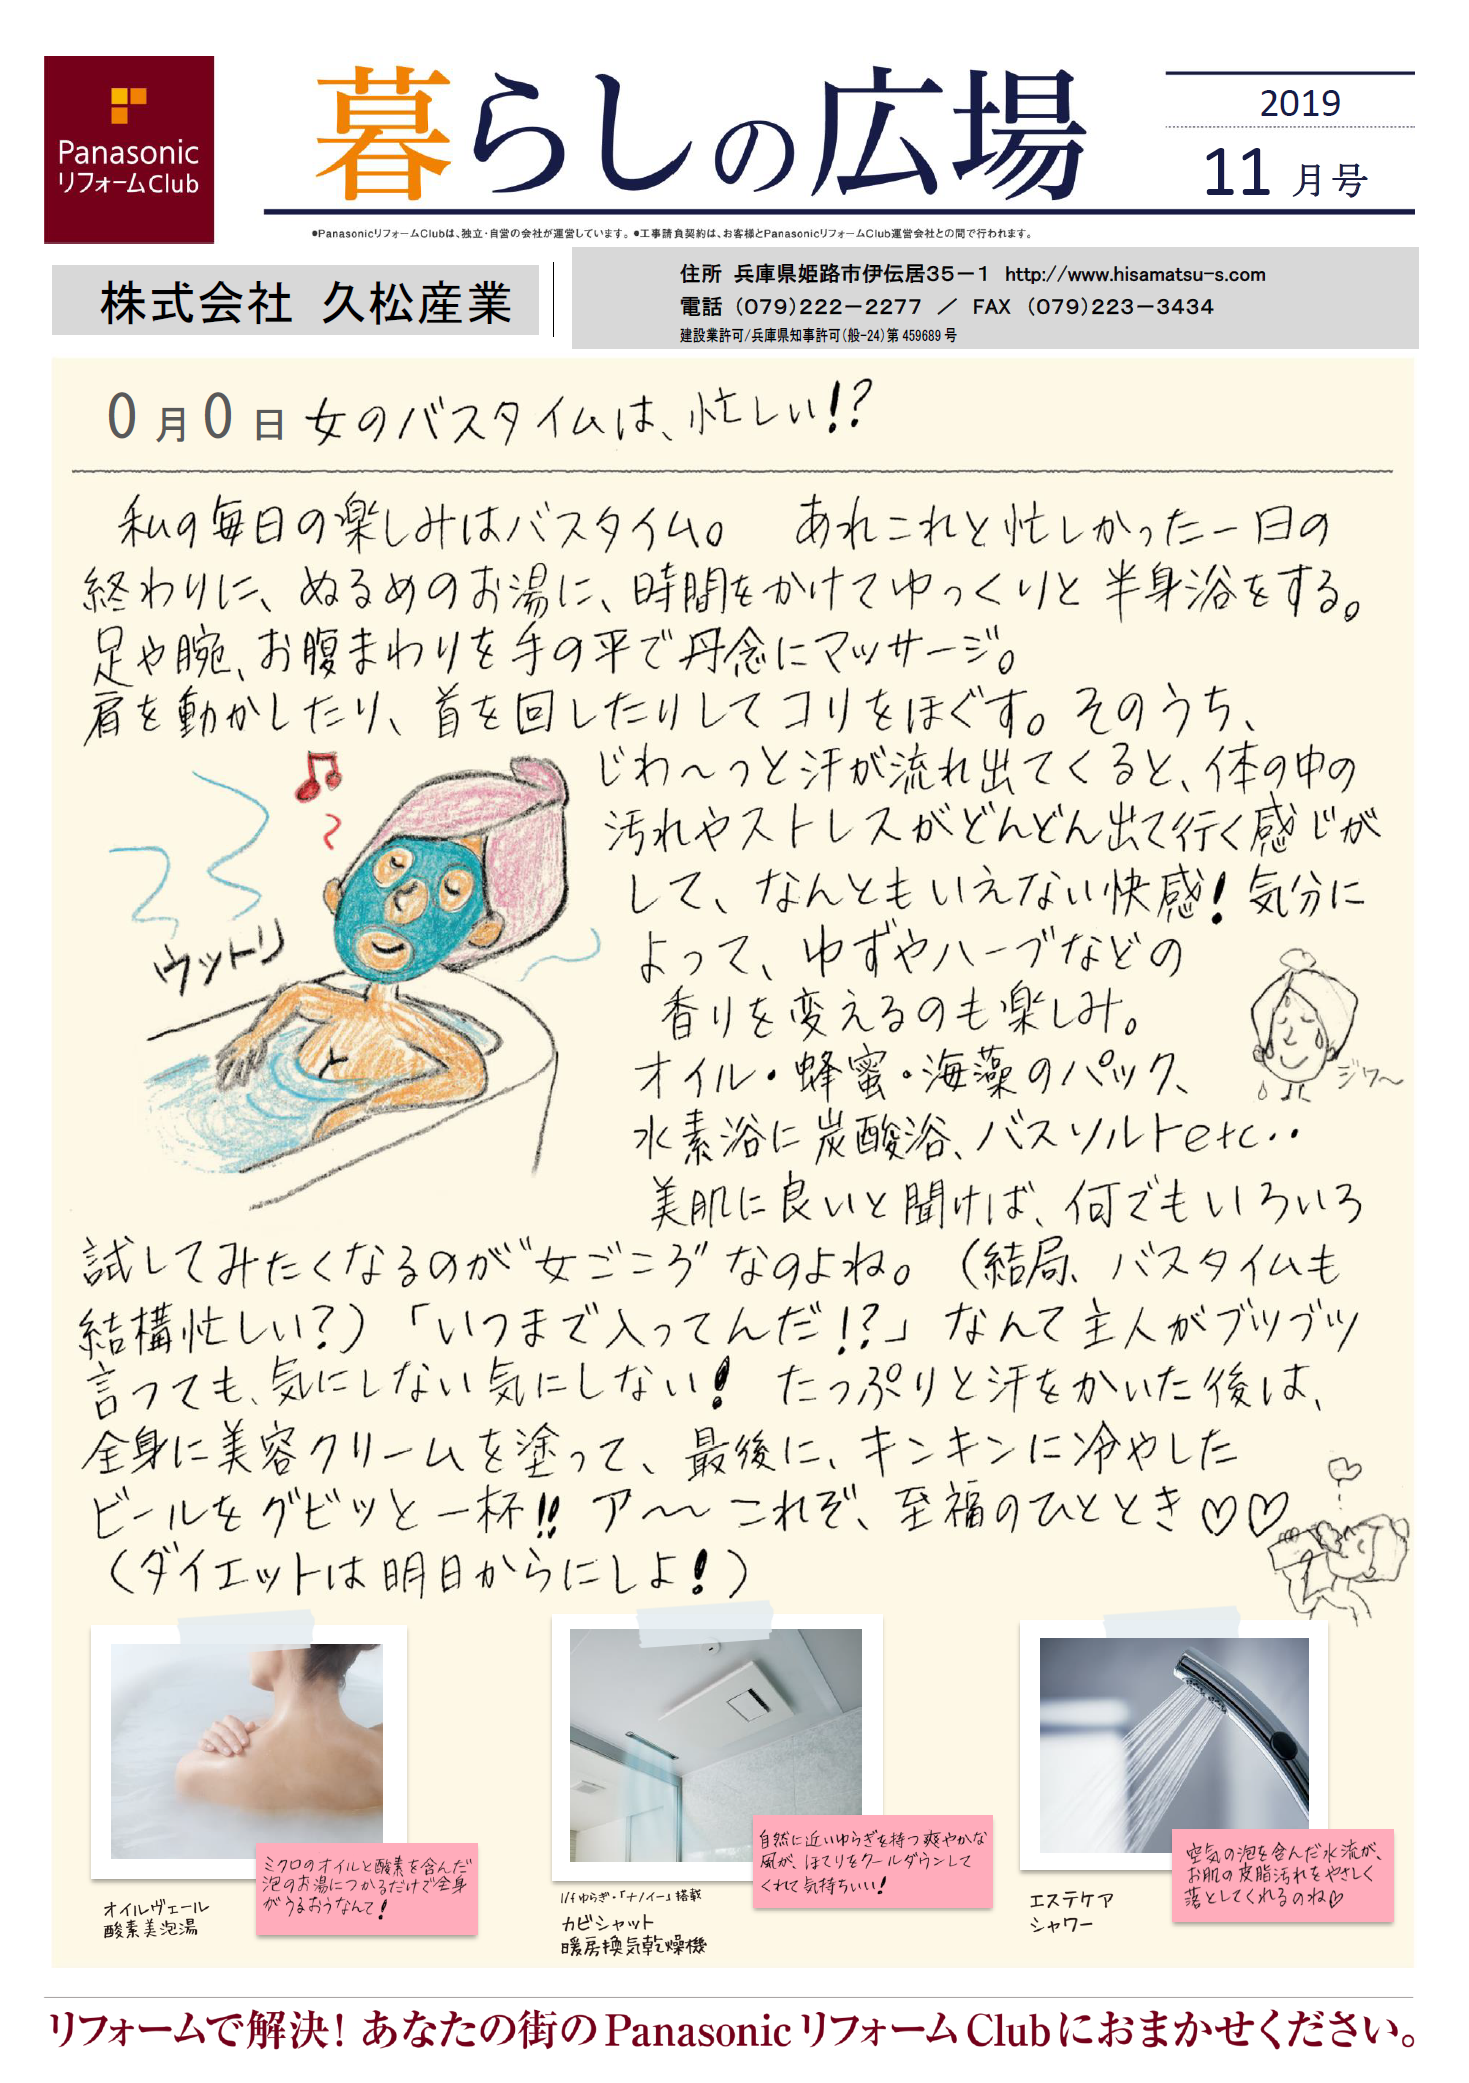 Panasonic
リフォームClub
暮らしの広場
2019
11 月号
●PanasonicリフォームClubは、独立・自営の会社が運営しています。 ●工事請負契約は、お客様とPanasonicリフォームClub運営会社との間で行われます。
株式会社 久松産業
住所 兵庫県姫路市伊伝居35－1 http://www.hisamatsu-s.com
電話 (079)222－2277 ／ FAX (079)223－3434
建設業許可/兵庫県知事許可(般-24)第 459689 号
0 月 0 日 女のバスタイムは、忙しい!?
私の毎日の楽しみはバスタイム。 あれこれと忙しかった一日の
終わりに、ぬるめのお湯に、時間をかけてゆっくりと半身浴をする。
足や腕、お腹まわりを手の平で丹念にマッサージ。
肩を動かしたり、首を回したりしてコリをほぐす。そのうち、
じわ〜っと汗が流れ出てくると、体の中の
汚れやストレスがどんどん出て行く感じが
して、なんともいえない快感!気分に
よって、ゆずやハーブなどの
香りを変えるのも楽しみ。
オイル・蜂蜜・海藻のパック、
水素浴に炭酸浴、バスソルトetc‥
美肌に良いと聞けば、何でもいろいろ
試してみたくなるのが“女ごころ”なのよね。（結局、バスタイムも
結構忙しい?）「いつまで入ってんだ!?」なんて主人がブツブツ
言っても、気にしない気にしない! たっぷりと汗をかいた後は、
全身に美容クリームを塗って、最後に、キンキンに冷やした
ビールをグビッと一杯!! ア〜〜これぞ、至福のひととき♡♡
（ダイエットは明日からにしよ!）
ウットリ
ジワ〜
ミクロのオイルと酸素を含んだ
泡のお湯につかるだけで全身
がうるおうなんて!
オイルヴェール
酸素美泡湯
自然に近いゆらぎを持つ爽やかな
風が、ほてりをクールダウンして
くれて気持ちいい!
1/fゆらぎ・「ナノイー」搭載
カビシャット
暖房換気乾燥機
空気の泡を含んだ水流が、
お肌の皮脂汚れをやさしく
落としてくれるのね♡
エステケア
シャワー
リフォームで解決! あなたの街のPanasonicリフォームClubにおまかせください。